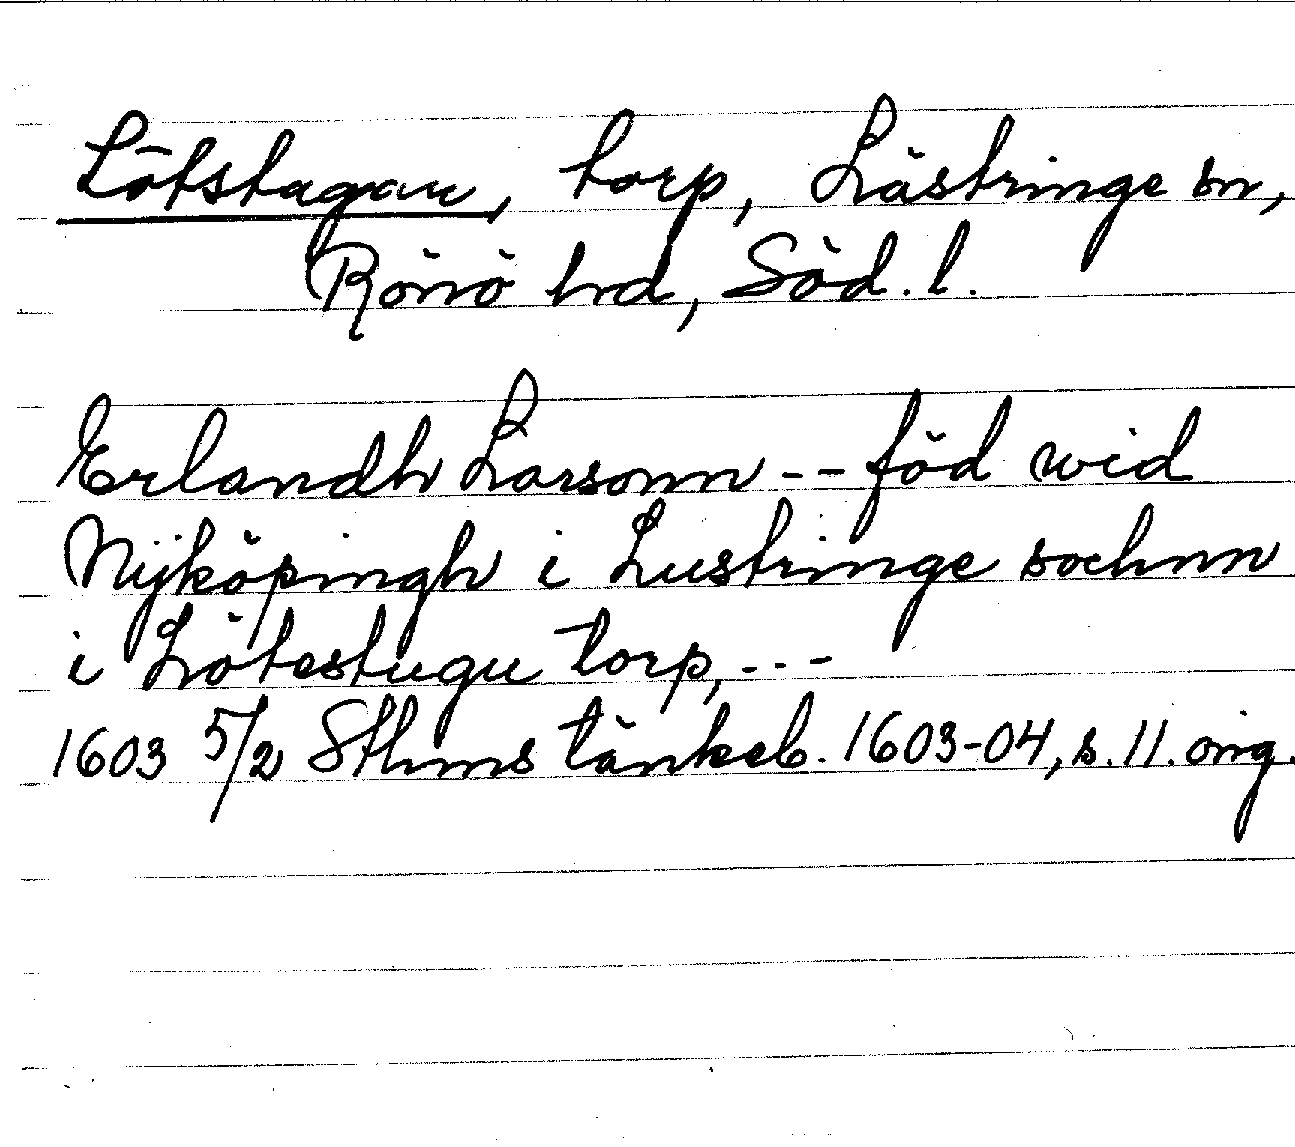 Lötstugan, torp, Lästringe sn,
Rönö hrd, Söd. l.
Erlandh Larsonn -- föd wid
Nyköpingh i Lustringe sochnn
i Lötestugu torp, ---
1603 5/2 Sthms tänkeb. 1603-04, s. 11. orig.